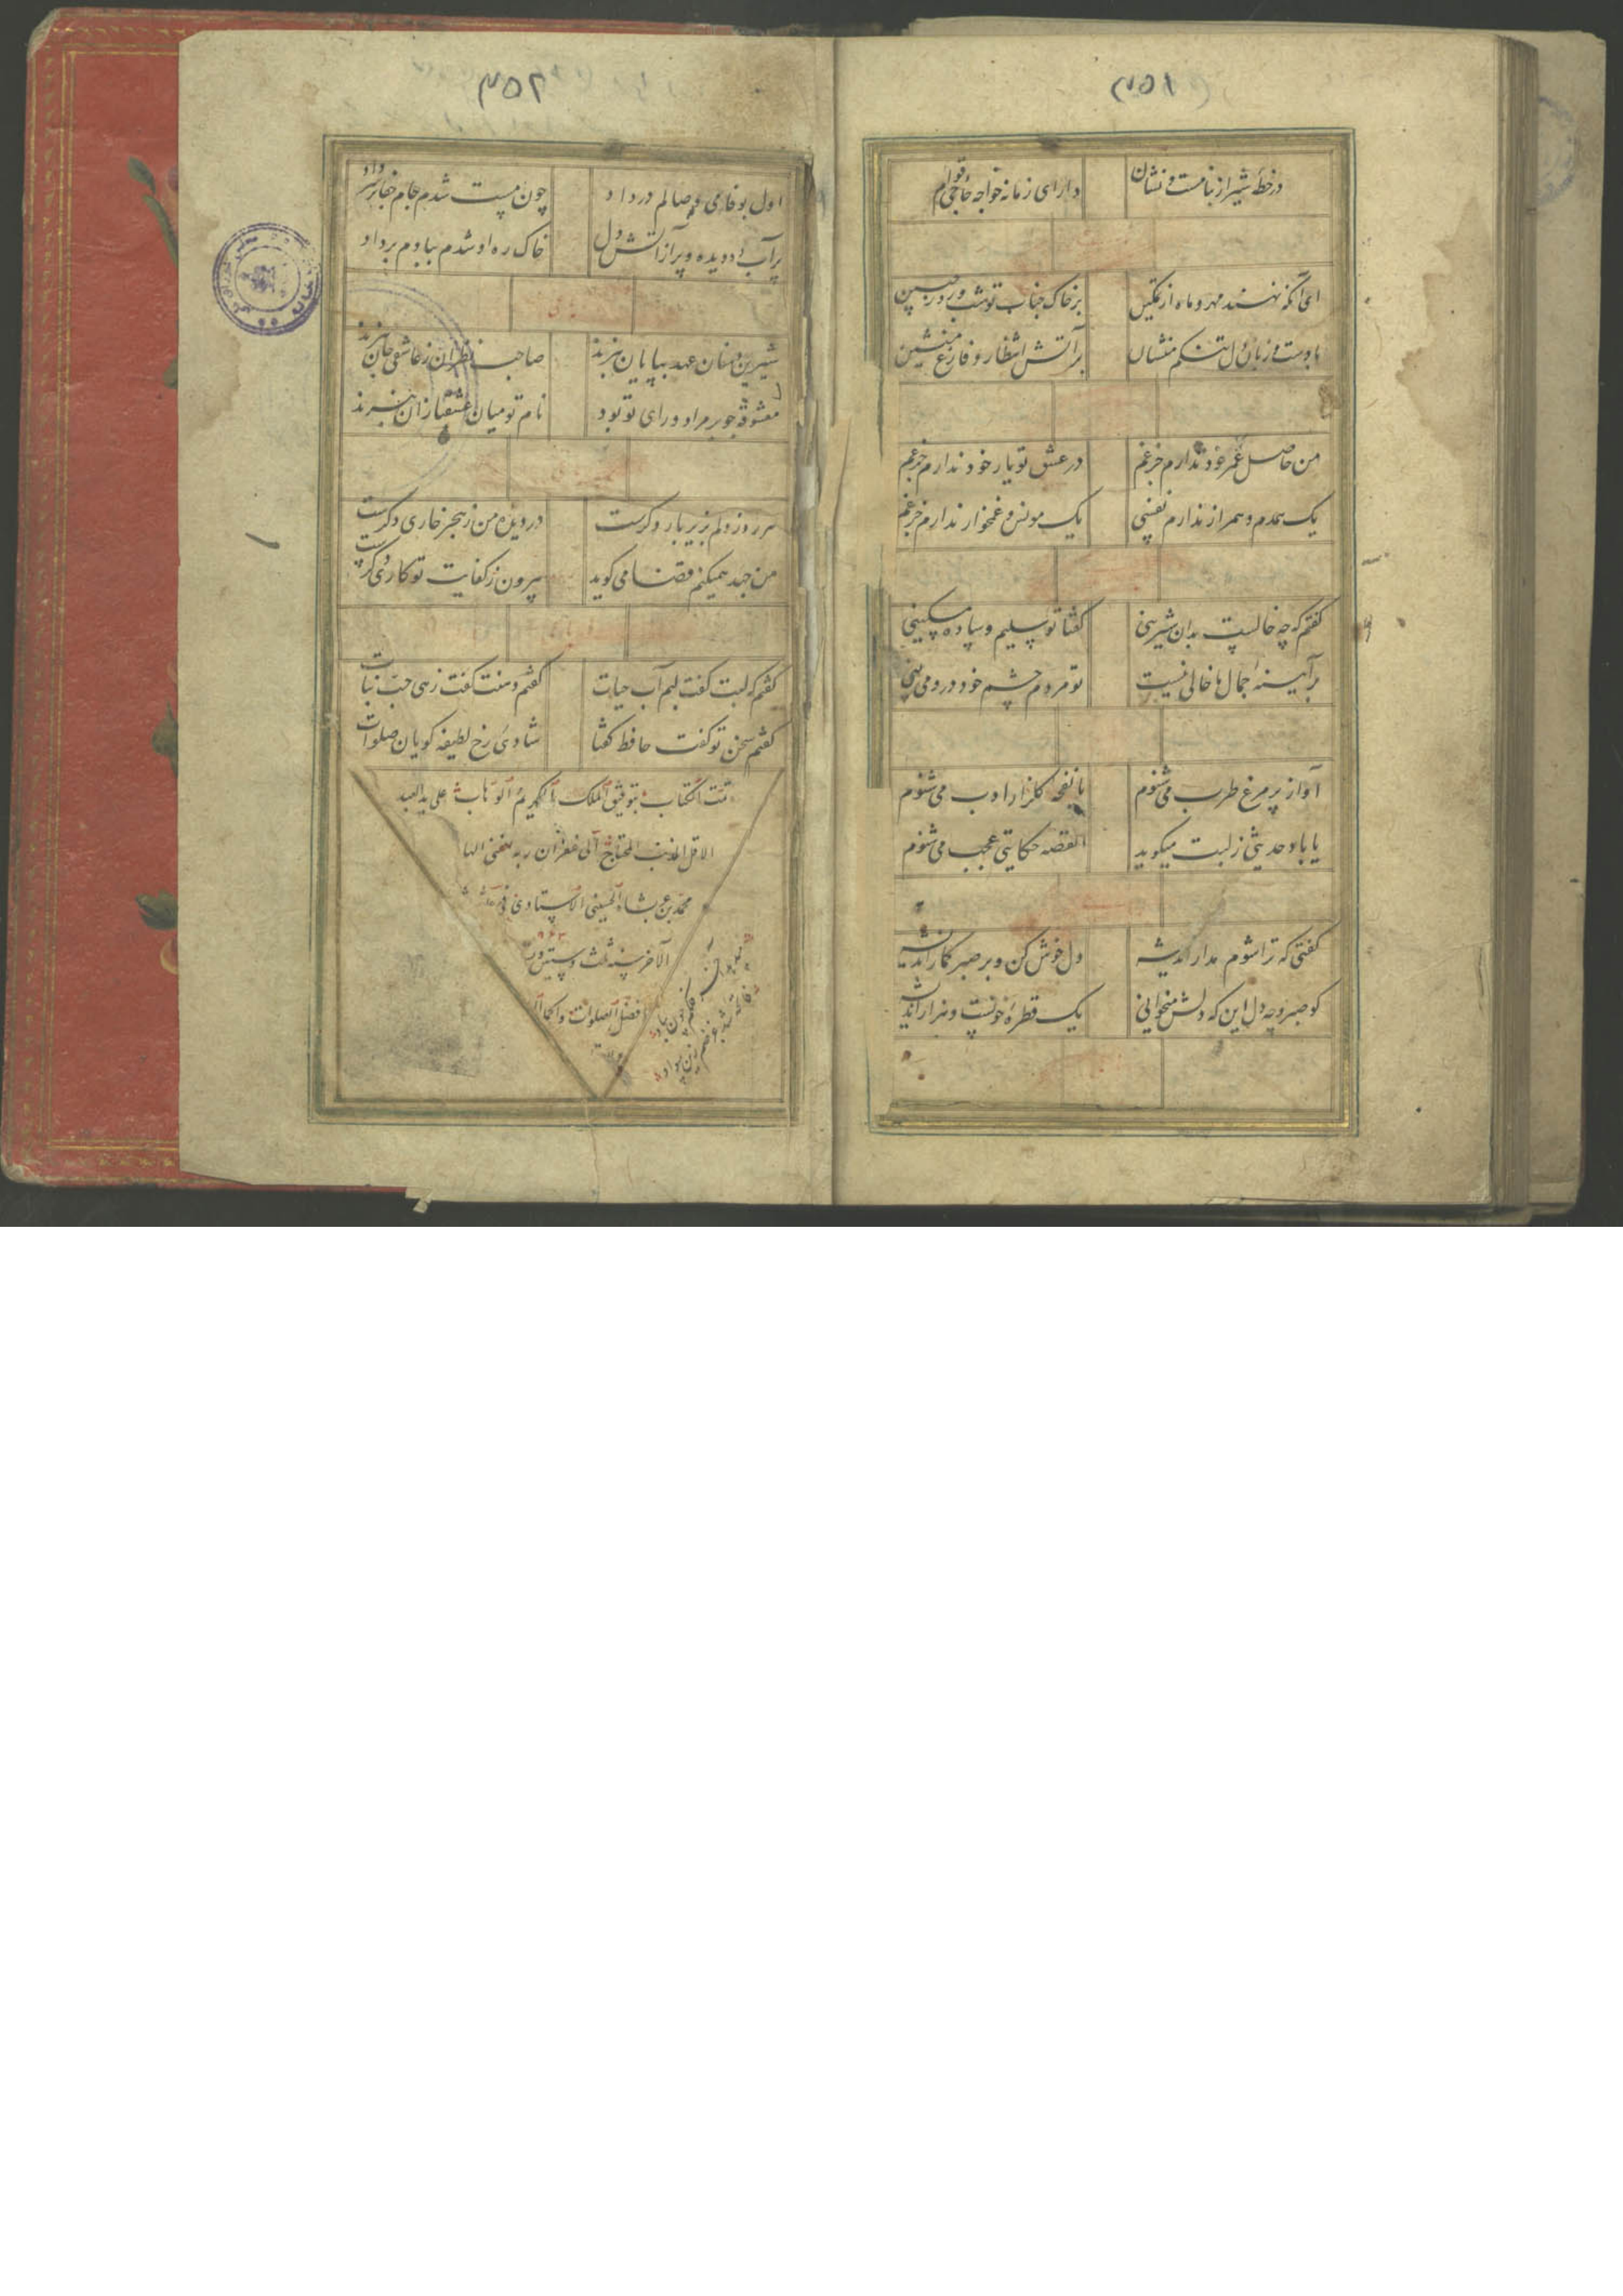 ۳۵۱
در خطه شیراز بنامست و نشان دارای زمانه خواجه حاجی قوام
ای آنکه نهند مهر و ماه از تمکین بر خاک جناب تو شب و روز جبین
با دست و زبان و دل تنگم منشان بر آتش انتظار و فارغ منشین
من حاصل عمر خود ندارم جز غم در عشق تو یار خود ندارم جز غم
یک همدم و همراز ندارم نفسی یک مونس و غمخوار ندارم جز غم
گفتم که چه خالست بدان شیرینی گفتا تو سلیم و ساده مسکینی
بر آینه جمال ما خالی نیست تو مردم چشم خود درو می بینی
آواز پر مرغ طرب می شنوم یا نفحه گلزار ادب می شنوم
یا باد حدیثی ز لبت میگوید القصه حکایتی عجب می شنوم
گفتی که ترا شوم مدار اندیشه دل خوش کن و بر صبر گمار اندیشه
کو صبر و چه دل این که دلش میخوانی یک قطره خونست و هزار اندیشه
۳۵۲
اول بوفا می وصالم در داد چون مست شدم جام جفا بر سر داد
پر آب دو دیده و پر از آتش دل خاک ره او شدم ببادم بر داد
شیرین دهنان عهد بپایان نبرند صاحب نظران ز عاشقی جان نبرند
معشوقه چو بر مراد و رای تو بود نام تو میان عشقبازان نبرند
هر روز دلم بزیر بار دگرست در دیده من ز هجر خاری دگرست
من جهد همیکنم قضا می گوید بیرون ز کفایت تو کاری دگرست
گفتم که لبت گفت لبم آب حیات گفتم دهنت گفت زهی حب نبات
گفتم سخن تو گفت حافظ گفتا شادی رخ لطیفه گویان صلوات
تمت الکتاب بتوفیق الملک الکریم الوهاب علی ید العبد
الاقل المذنب المحتاج الی غفران ربه الغنی
محمد بن عربشاه الحسینی
الآخر سنه ثلث و ستین و
۹۶۳
افضل الصلوات و